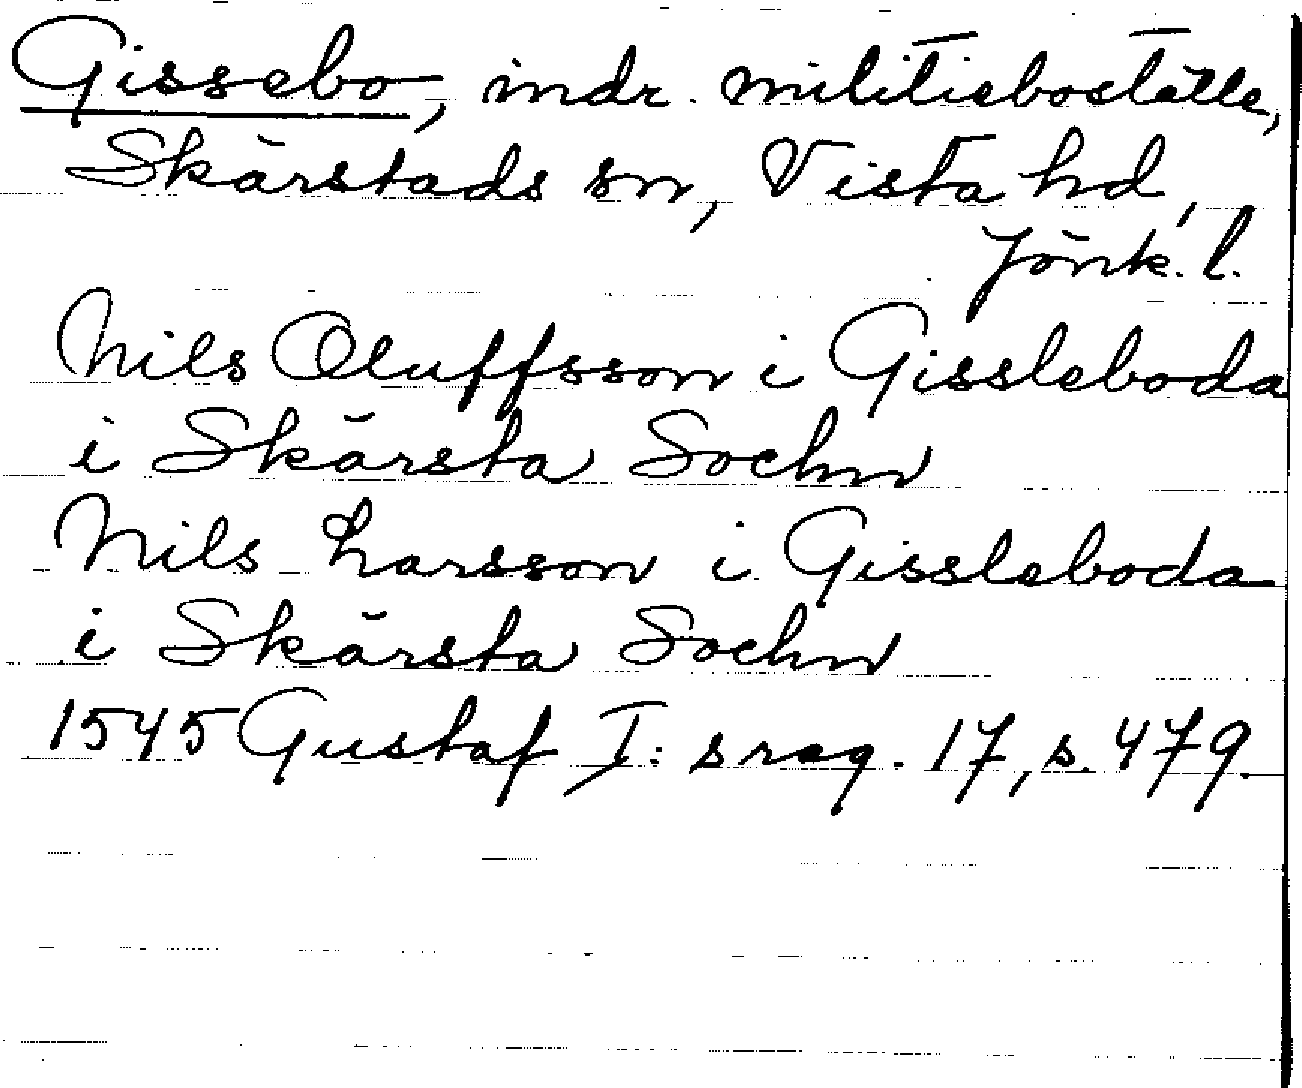 Gissebo, indr. militieboställe,
Skärstads sn, Vista hd,
Jönk. l.
Nils Oluffsson i Gissleboda
i Skärsta Sochn
Nils Larsson i Gissleboda
i Skärsta Sochn
1545 Gustaf I: s reg. 17, s. 479.